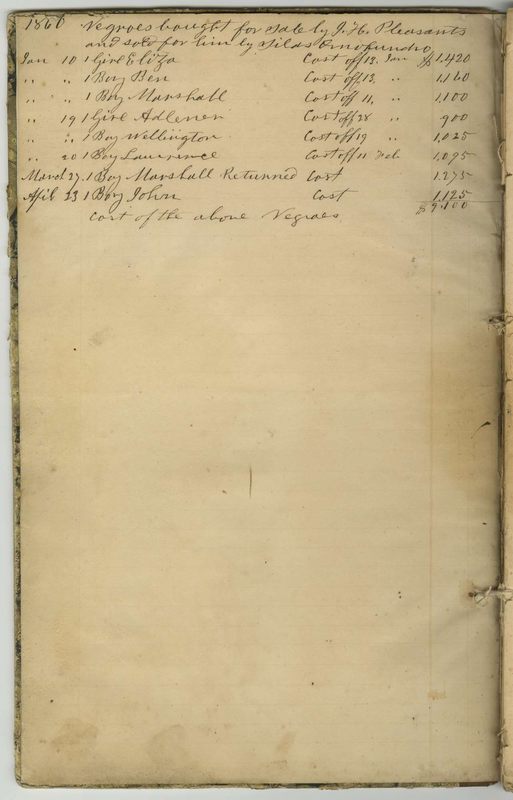 1860 Negroes bought for Sale by J. H. Pleasants
and sold for him by Silas Omohundro
Jan 10 1 Girl Eliza Cost off 13, Jan $1,420
" " 1 Boy Ben Cost off 13, " 1,160
" " 1 Boy Marshall Cost off 11, " 1,100
" 19 1 Girl Adlener Cost off 28 " 900
" " 1 Boy Wellington Cost off 19 " 1,025
" 20 1 Boy Lawrence Cost off 11 Feb 1,095
March 27, 1 Boy Marshall Returned Cost 1,275
April 23 1 Boy John Cost 1,125
Cost of the above Negroes $9,100